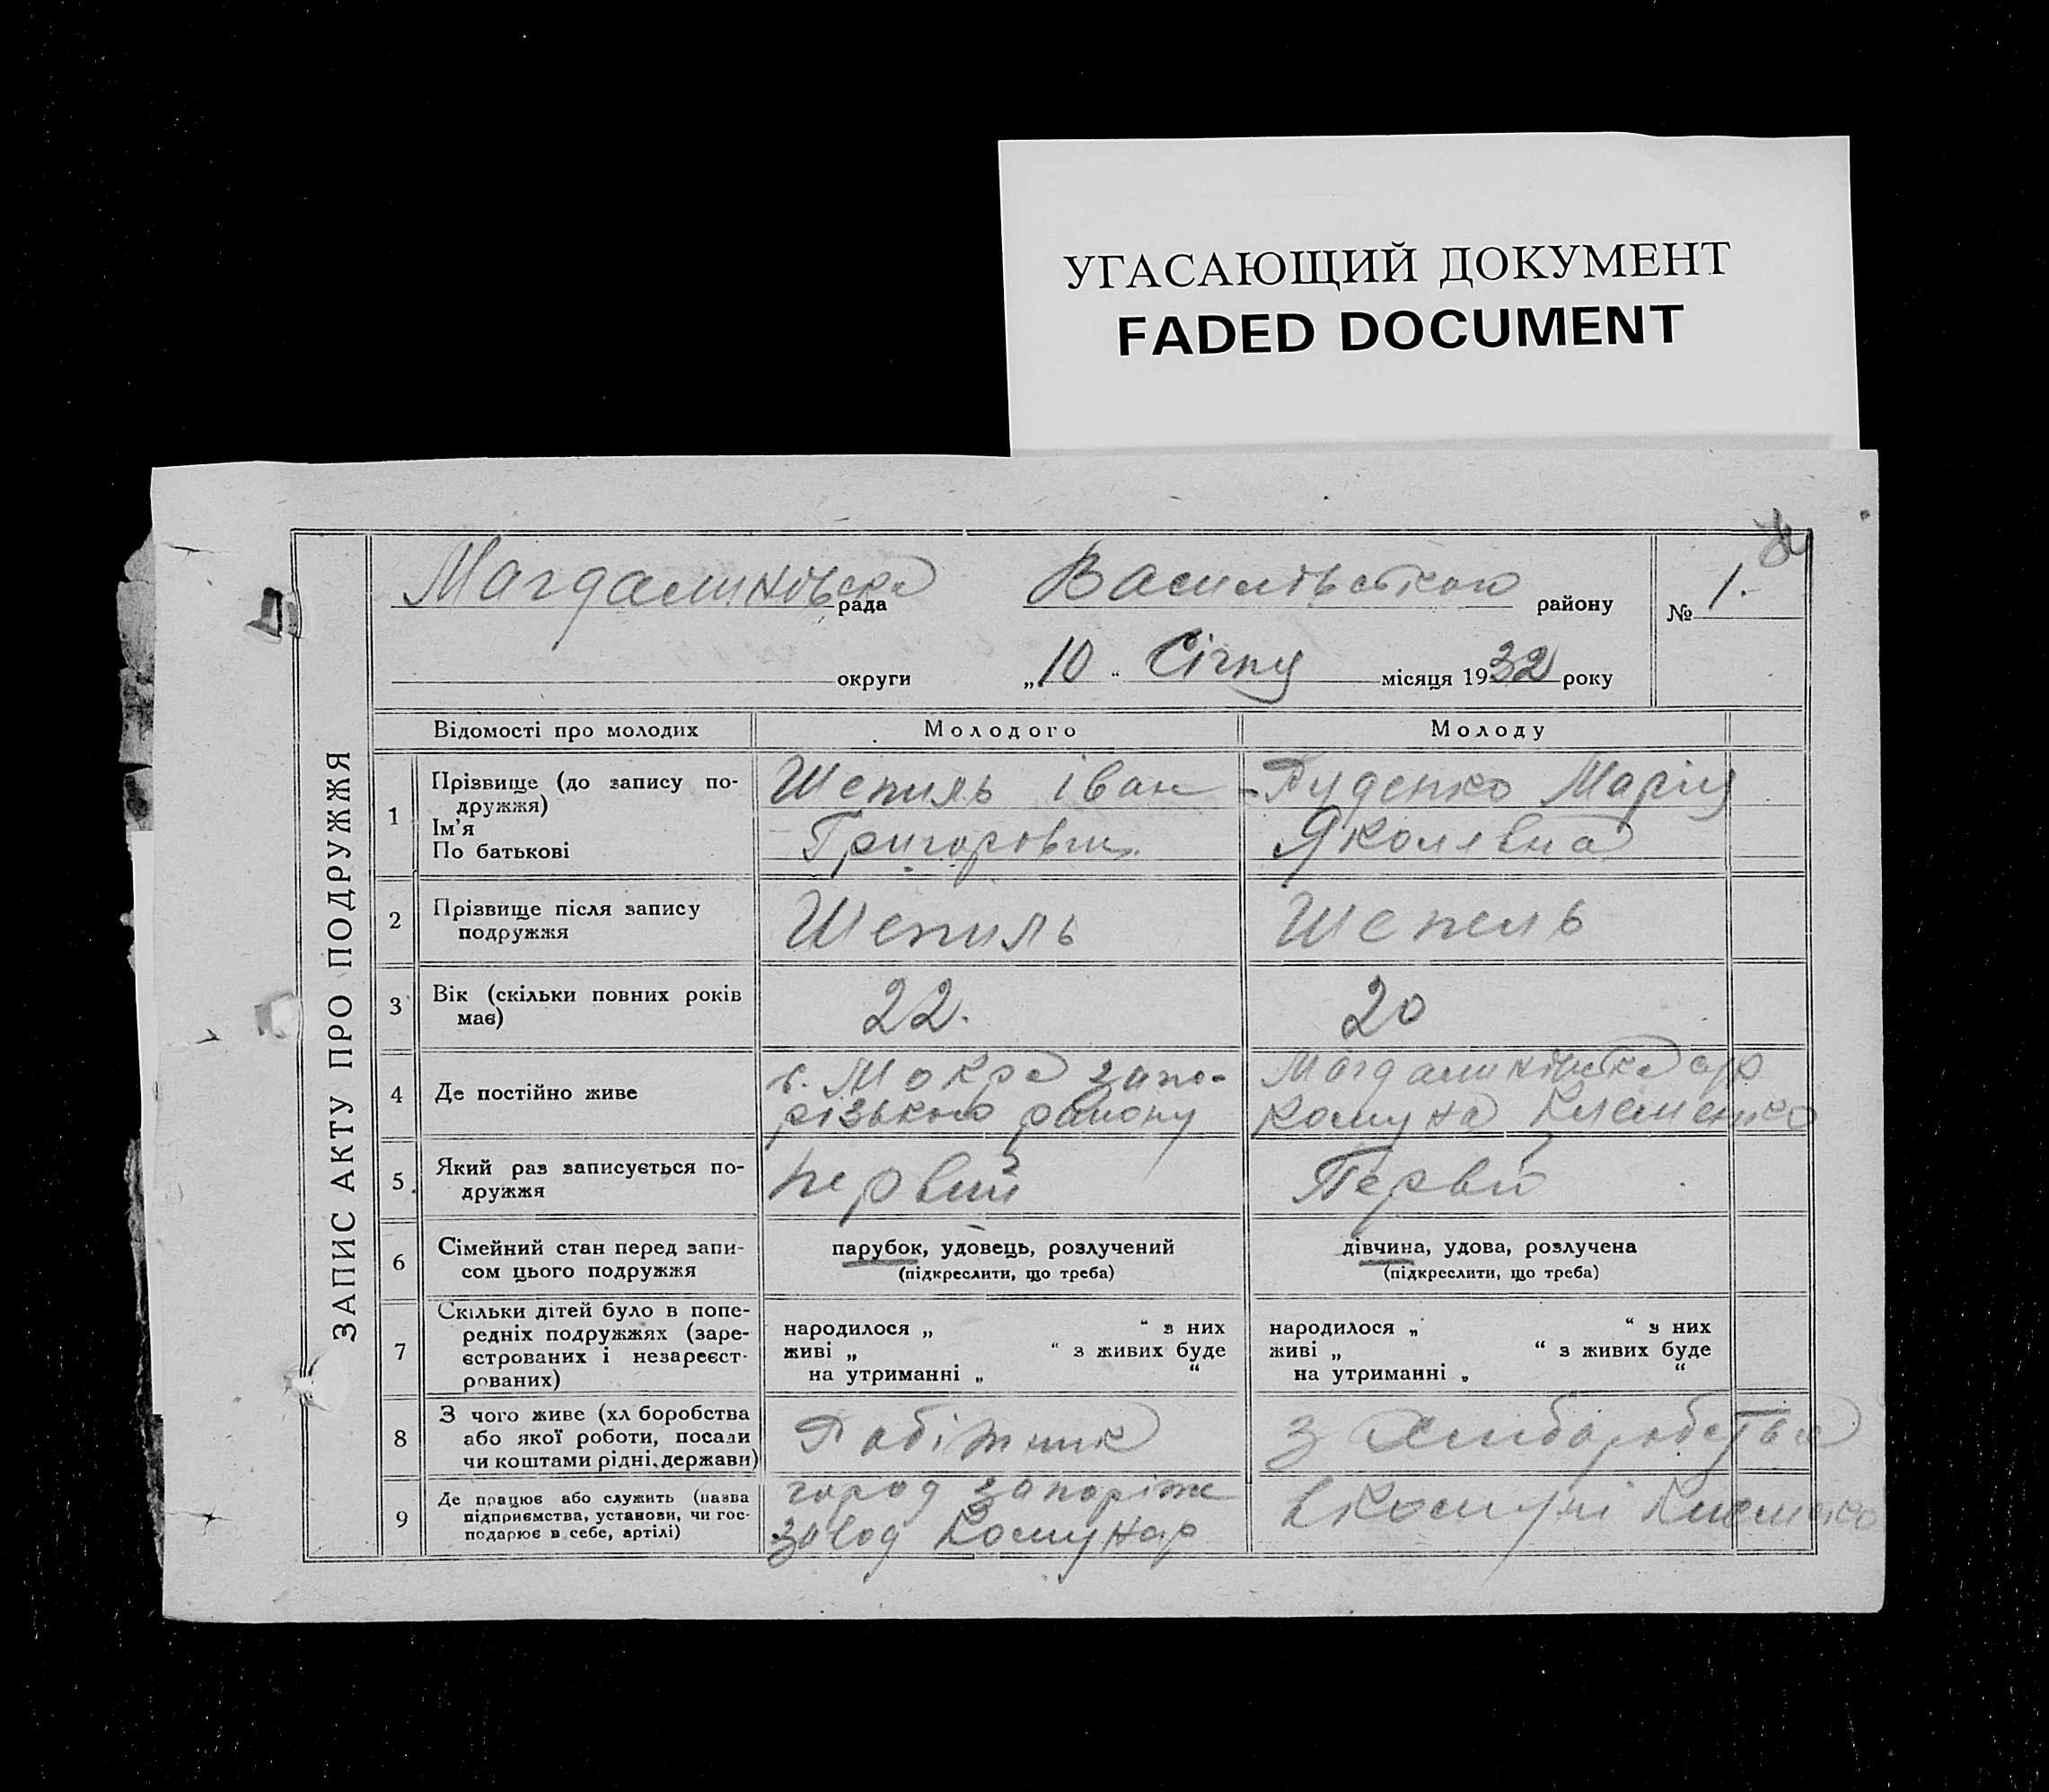 УГАСАЮЩИЙ ДОКУМЕНТ
FADED DOCUMENT
ЗАПИС АКТУ ПРО ПОДРУЖЖЯ
Магдалинівска рада Василівського району № 1.
округи „10“ Січну місяця 1932 року
Відомості про молодих Молодого Молоду
1 Прізвище (до запису по-
дружжя)
Ім'я
По батькові
Шепиль Іван
Григорович
Руденко Марія
Яколевна
2 Прізвище після запису
подружжя
Шепиль
Шепель
3 Вік (скільки повних років
має)
22.
20
4 Де постійно живе
с. Мокра запо-
різького району
Магдалинівска с/р
комуна Клеменко
5. Який раз записується по-
дружжя
первий
Перви
6 Сімейний стан перед запи-
сом цього подружжя
парубок, удовець, розлучений
(підкреслити, що треба)
дівчина, удова, розлучена
(підкреслити, що треба)
7 Скільки дітей було в попе-
редніх подружжях (заре-
єстрованих і незареєст-
рованих)
народилося „ “ з них
живі „ “ з живих буде
на утриманні „ “
народилося „ “ з них
живі „ “ з живих буде
на утриманні „ “
8 З чого живе (хл боробства
або якої роботи, посади
чи коштами рідні, держави)
Робітник
З хлиборобства
9 Де працює або служить (назва
підприємства, установи, чи гос-
подарює в себе, артілі)
город запоріж
завод Комунар
в комуні Клеменко